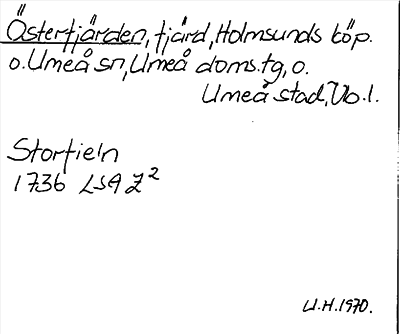 Österfjärden, fjärd, Holmsunds köp.
o. Umeå sn, Umeå doms.tg, o.
Umeå stad, Vb. l.
Storfieln
1736 LSA Z²
U.H. 1970.